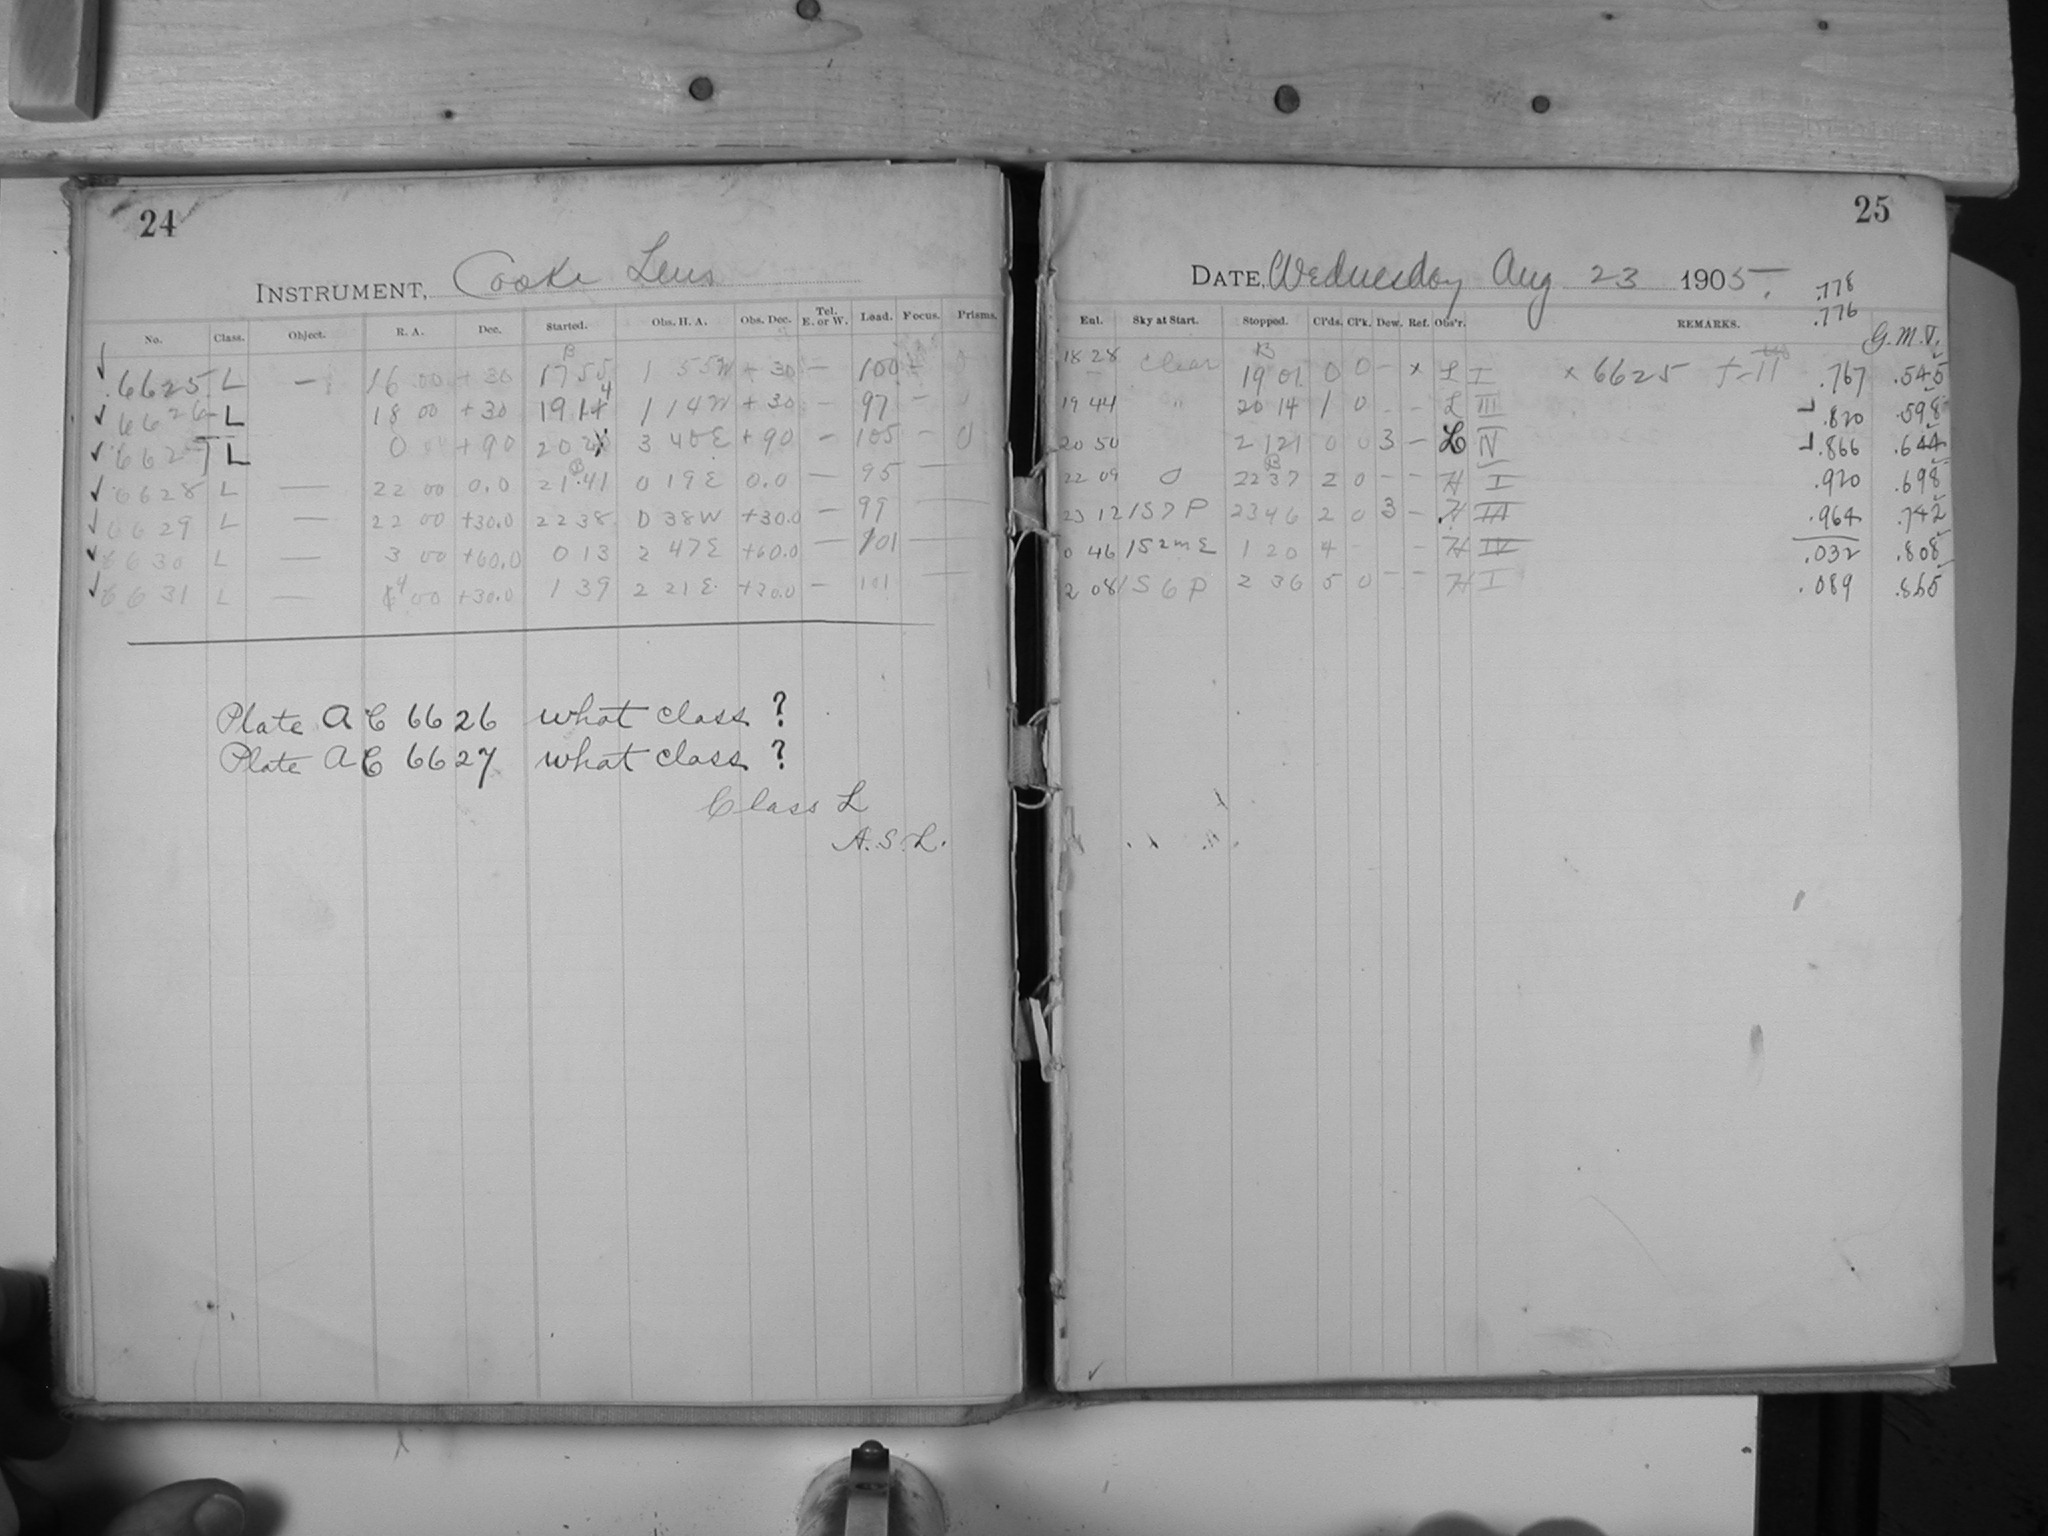 24
INSTRUMENT, Cooke Lens
No. Class. Object. R. A. Dec. Started. Obs. H. A. Obs. Dec. Tel. E. or W. Load. Focus. Prisms.
B
6625 L — 16 00 + 30 17 55 1 55W + 30 — 100 — 0
6626 L 18 00 + 30 19 14 1 14W + 30 — 97 —
6627 L 0 + 90 20 3 40E + 90 — 105 — 0
B
6628 L — 22 00 0.0 21 41 0 19E 0.0 — 95 —
6629 L — 22 00 +30.0 22 38 0 38W +30.0 — 99 —
6630 L — 3 00 +60.0 0 13 2 47E +60.0 — 101 —
6631 L — 4 00 +30.0 1 39 2 21E +30.0 — 101 —
Plate AC 6626 what class ?
Plate AC 6627 what class ?
Class L
A. S. L.
25
DATE, Wednesday Aug 23 1905.
.778
.776
Enl. Sky at Start. Stopped. Cl'ds. Cl'k. Dew. Ref. Obs'r. REMARKS. G. M. T.
B
18 28 Clear 19 01 0 0 - x L I x 6625 .767 .545
19 44 " 20 14 1 0 - - L III .820 .598
20 50 21 21 0 0 3 - L IV .866 .644
B
22 09 0 22 37 2 0 - - H I .920 .698
23 12 1S7P 23 46 2 0 3 - H III .964 .742
0 46 1S2mE 1 20 4 - - H IV .032 .808
2 08 1S6P 2 36 5 0 - - H I .089 .865